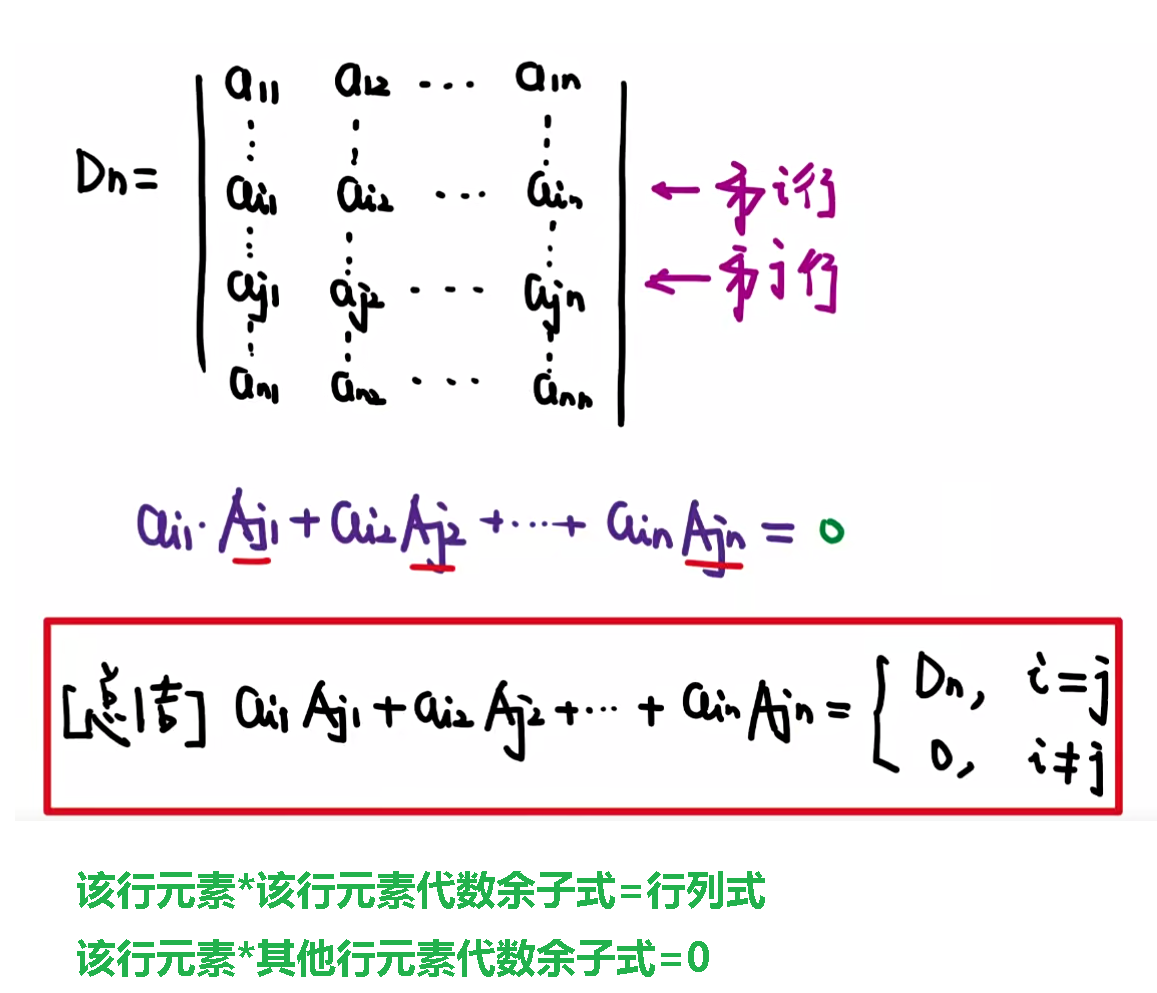 a11 a12 ... a1n
Dn= ai1 ai2 ... ain ←第i行
aj1 aj2 ... ajn ←第j行
an1 an2 ... ann
ai1·Aj1+ai2Aj2+...+ainAjn=0
[总结] ai1Aj1+ai2Aj2+...+ainAjn={Dn, i=j
0, i≠j
该行元素*该行元素代数余子式=行列式
该行元素*其他行元素代数余子式=0